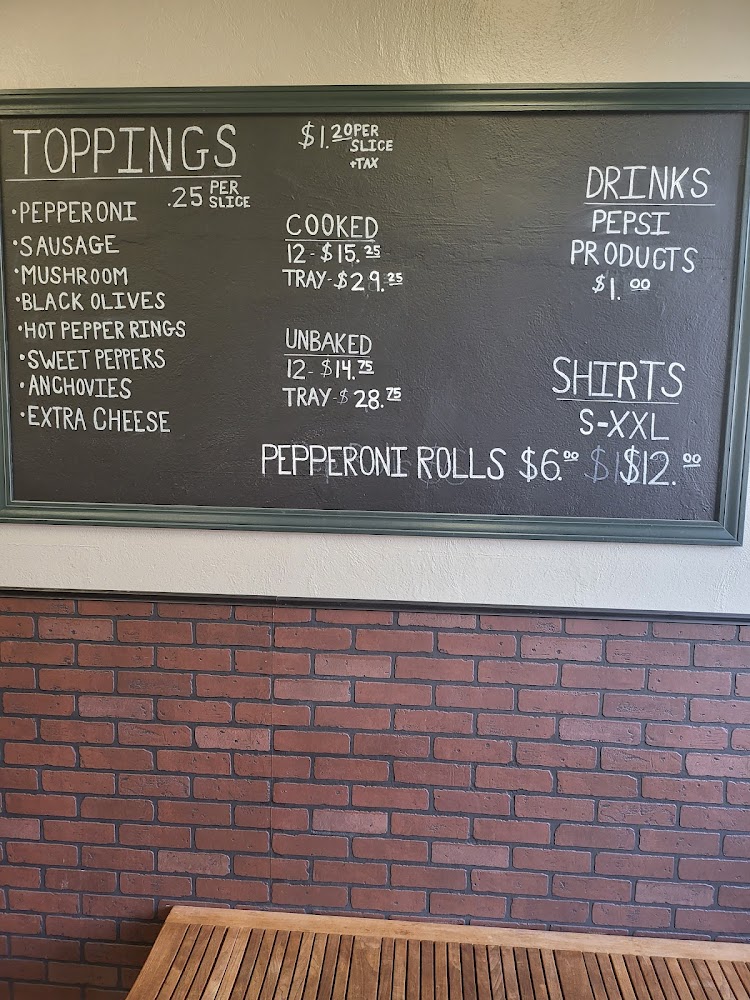 TOPPINGS
.25 PER SLICE
•PEPPERONI
•SAUSAGE
•MUSHROOM
•BLACK OLIVES
•HOT PEPPER RINGS
•SWEET PEPPERS
•ANCHOVIES
•EXTRA CHEESE
$1.20 PER
SLICE
+TAX
COOKED
12-$15.25
TRAY-$29.25
UNBAKED
12-$14.75
TRAY-$28.75
DRINKS
PEPSI
PRODUCTS
$1.00
SHIRTS
S-XXL
PEPPERONI ROLLS $6.00 $12.00